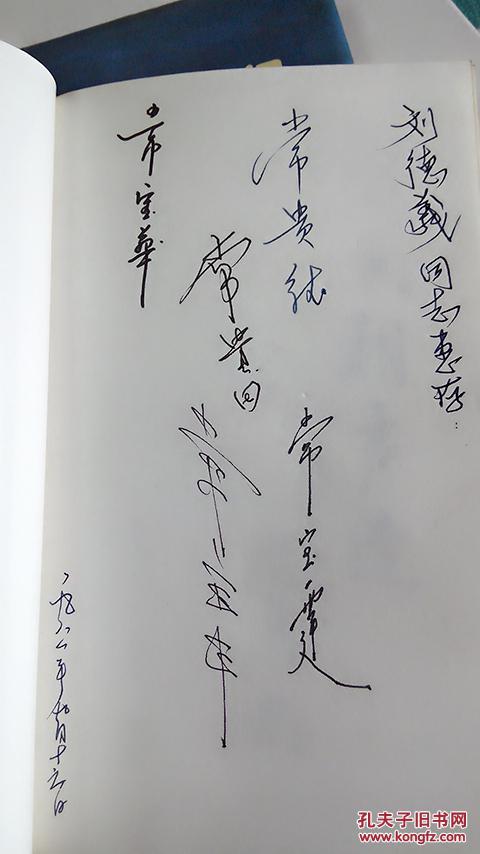 刘德义同志惠存:
常贵德
常宝霆
常贵田
常宝丰
常宝华
一九八六年九月十六日
孔夫子旧书网
www.kongfz.com